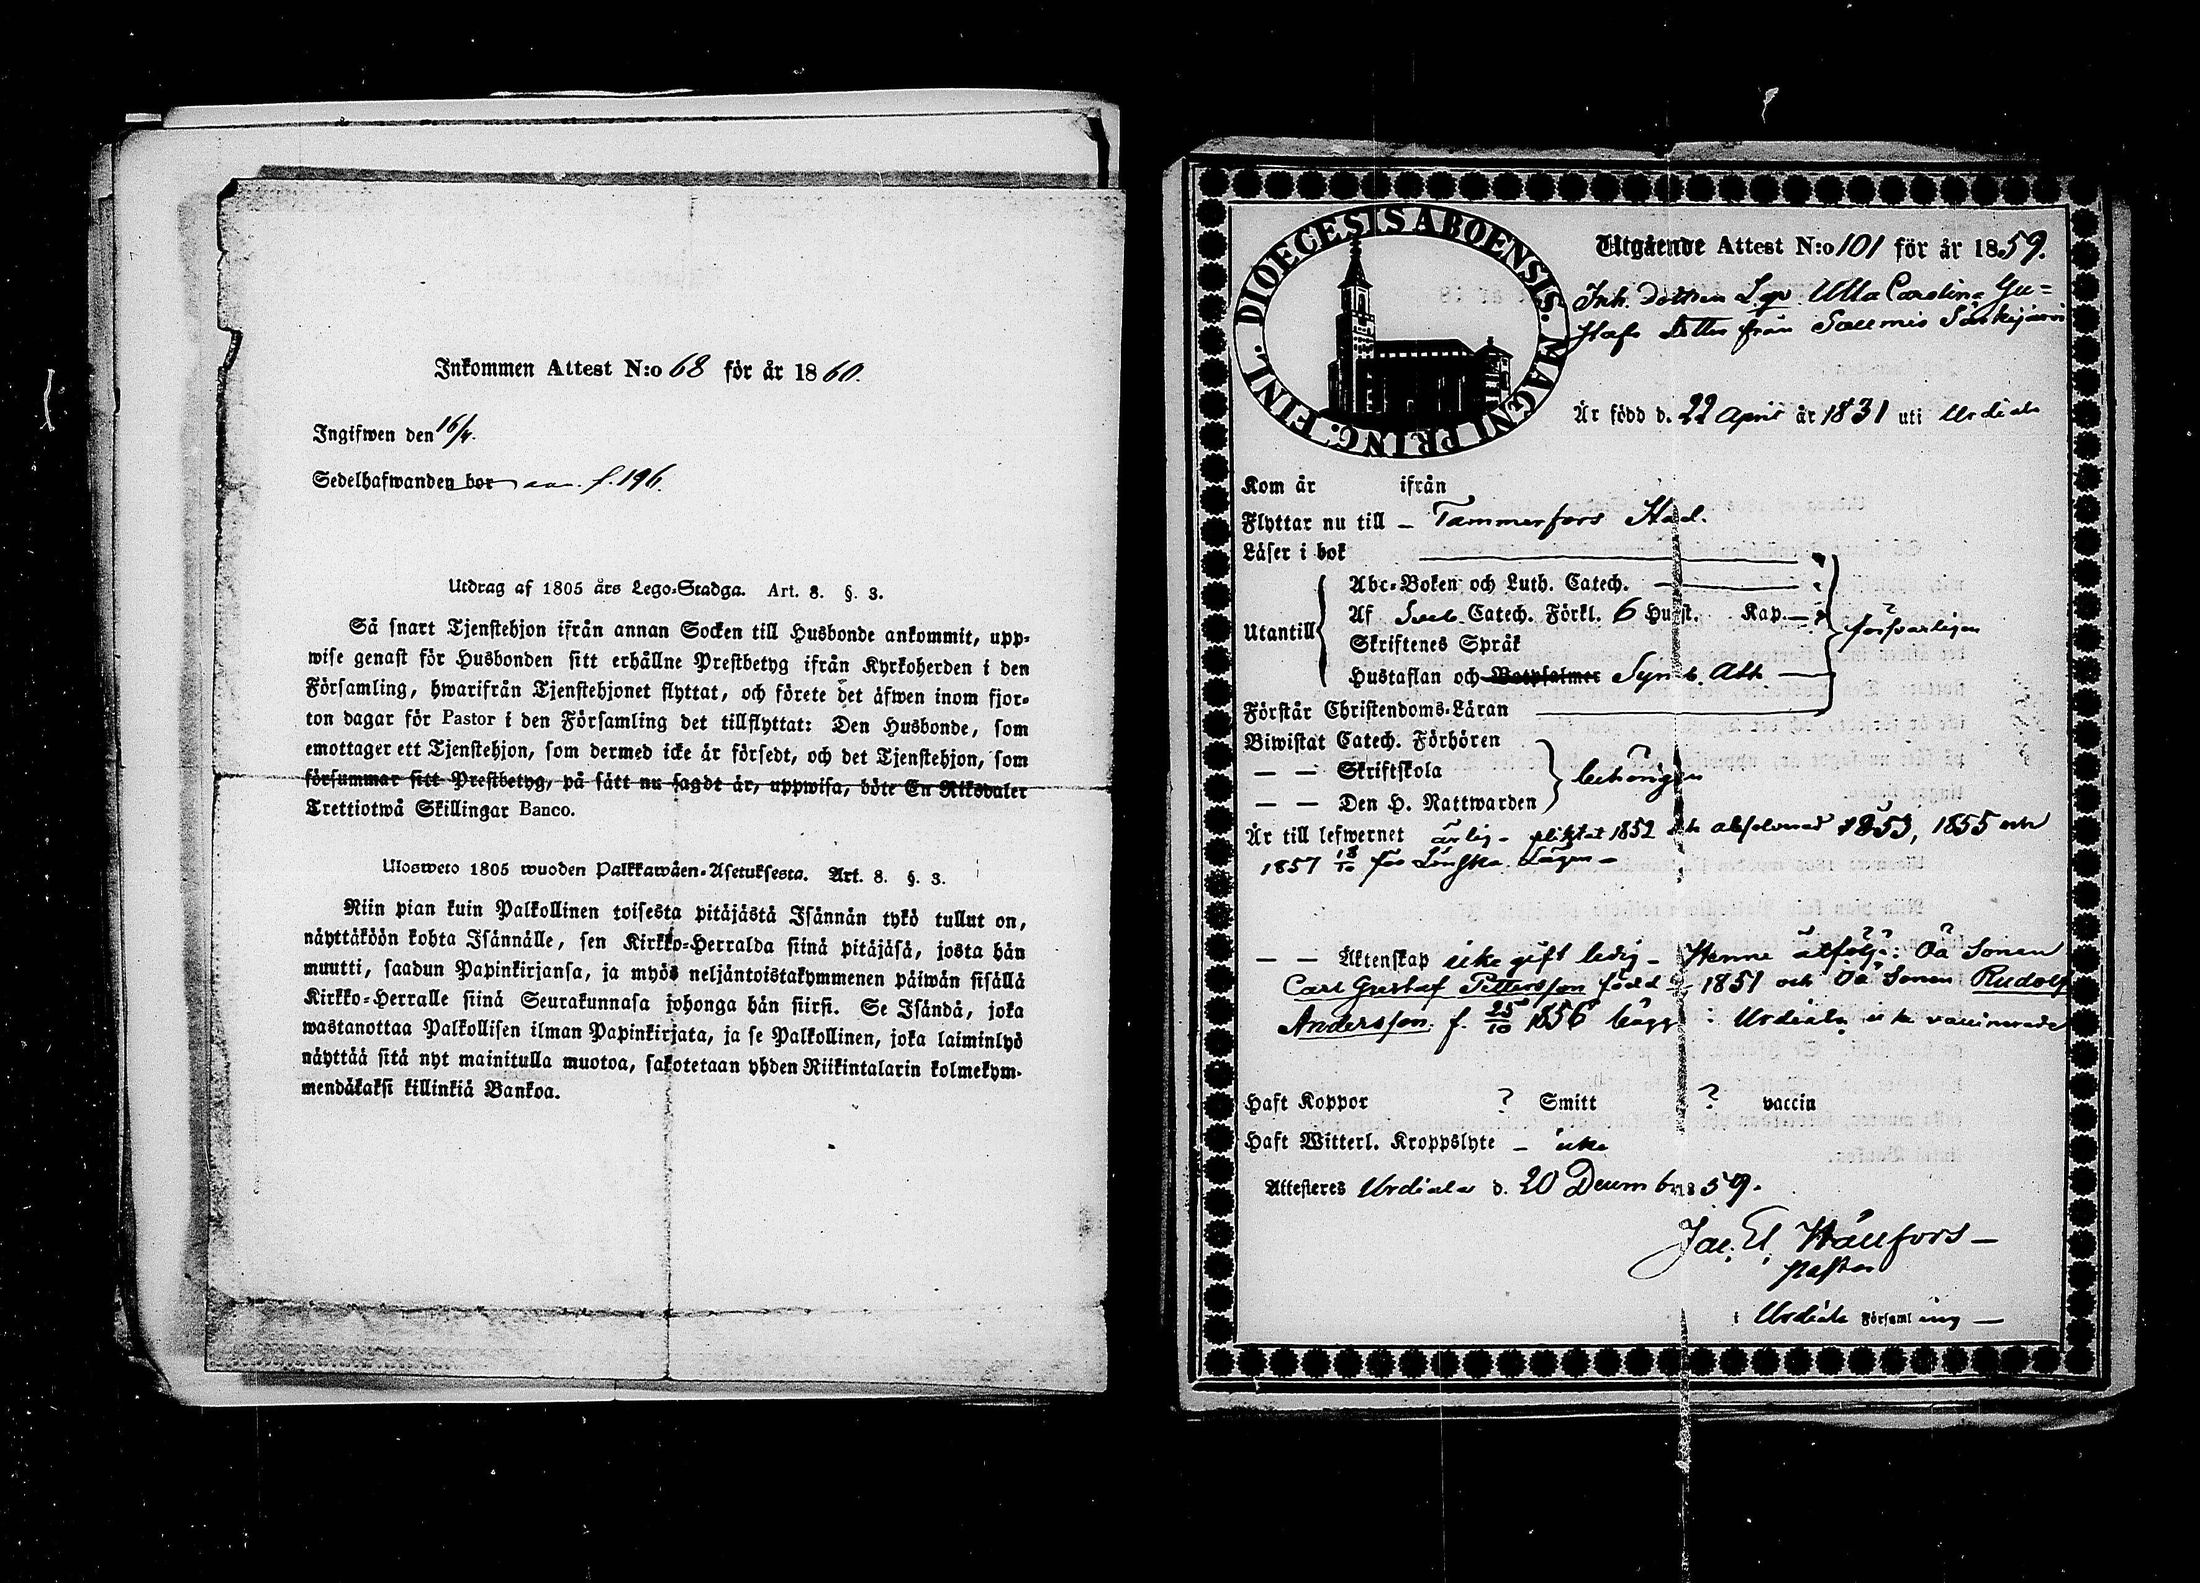 Inkommen Attest N:o 68 för år 1860.
Ingifwen den 16/4.
Sedelhafwanden bor f. 196.
Utdrag af 1805 års Lego-Stadga. Art. 8. §. 3.
Så snart Tjenstehjon ifrån annan Socken till Husbonde ankommit, upp-
wise genast för Husbonden sitt erhållne Prestbetyg ifrån Kyrkoherden i den
Församling, hwarifrån Tjenstehjonet flyttat, och förete det äfwen inom fjor-
ton dagar för Pastor i den Församling det tillflyttat: Den Husbonde, som
emottager ett Tjenstehjon, som dermed icke är försedt, och det Tjenstehjon, som
försummar sitt Prestbetyg, på sätt nu sagdt är, uppwisa, böte En Riksdaler
Trettiotwå Skillingar Banco.
Ulosweto 1805 wuoden Palkkawäen-Asetuksesta. Art. 8. §. 3.
Niin pian kuin Palkollinen toisesta pitäjästä Isännän tykö tullut on,
näyttäköön kohta Isännälle, sen Kirkko-Herralda siinä pitäjäsä, josta hän
muutti, saadun Papinkirjansa, ja myös neljäntoistakymmenen päiwän sisällä
Kirkko-Herralle siinä Seurakunnasa johonga hän siirsi. Se Isändä, joka
wastanottaa Palkollisen ilman Papinkirjata, ja se Palkollinen, joka laiminlyö
näyttää sitä nyt mainitulla muotoa, sakotetaan yhden Riikintalarin kolmekym-
mendäkaksi killinkiä Bankoa.
DIOECESIS ABOENSIS. MAGNI PRINC. FINL.
Utgående Attest N:o 101 för år 1859.
Inh. Dottren Ulla Carolina Gu=
stafs Dotter från Salmis Särkijärvi
Är född d. 22 April år 1831 uti Urdiala
Kom år ifrån
Flyttar nu till – Tammerfors Stad.
Läser i bok
Abc-Boken och Luth. Catech.
Utantill
Af Sveb. Catech. Förkl. 6 Hufst. Kap. – försvarligen
Skriftenes Språk
Hustaflan och Botpsalmer Symb. Ath
Förstår Christendoms-Läran
Biwistat Catech. Förhören
— — Skriftskola behörigen
— — Den H. Nattwarden
Är till lefwernet ärlig – pliktat 1852 och absolverad 1853, 1855 och
1857 18/10 för Lönska Lägen –
— — Äktenskap icke gift ledig – Henne åtfölja: Oä Sonen
Carl Gustaf Pettersson född 1851 och Oä Sonen Rudolf
Andersson f. 25/10 1856 bägge i Urdiala icke vaccinerade
Haft Koppor ? Smitt ? vaccin
Haft Witterl. Kroppslyte – icke
Attesteres Urdiala d. 20 Decemb 1859.
Jac. El. Hällfors –
Pastor
i Urdiala Församling –